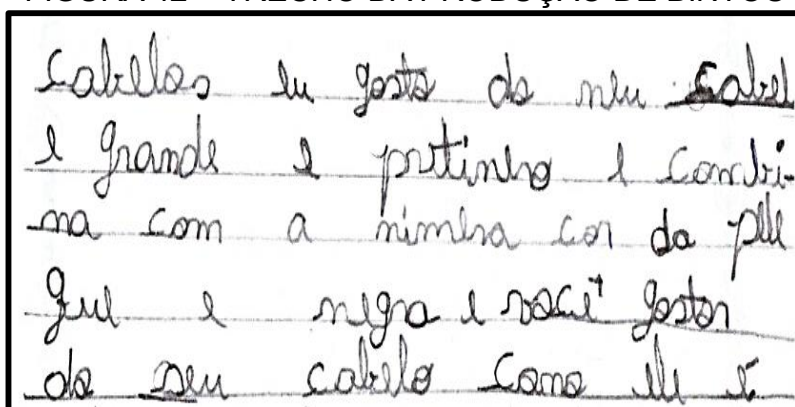 cabelos eu gosto do meu cabel
e grande e pretinho e combi-
na com a nimha cor da pele
que e negra e você gostar
do seu cabelo como ele é